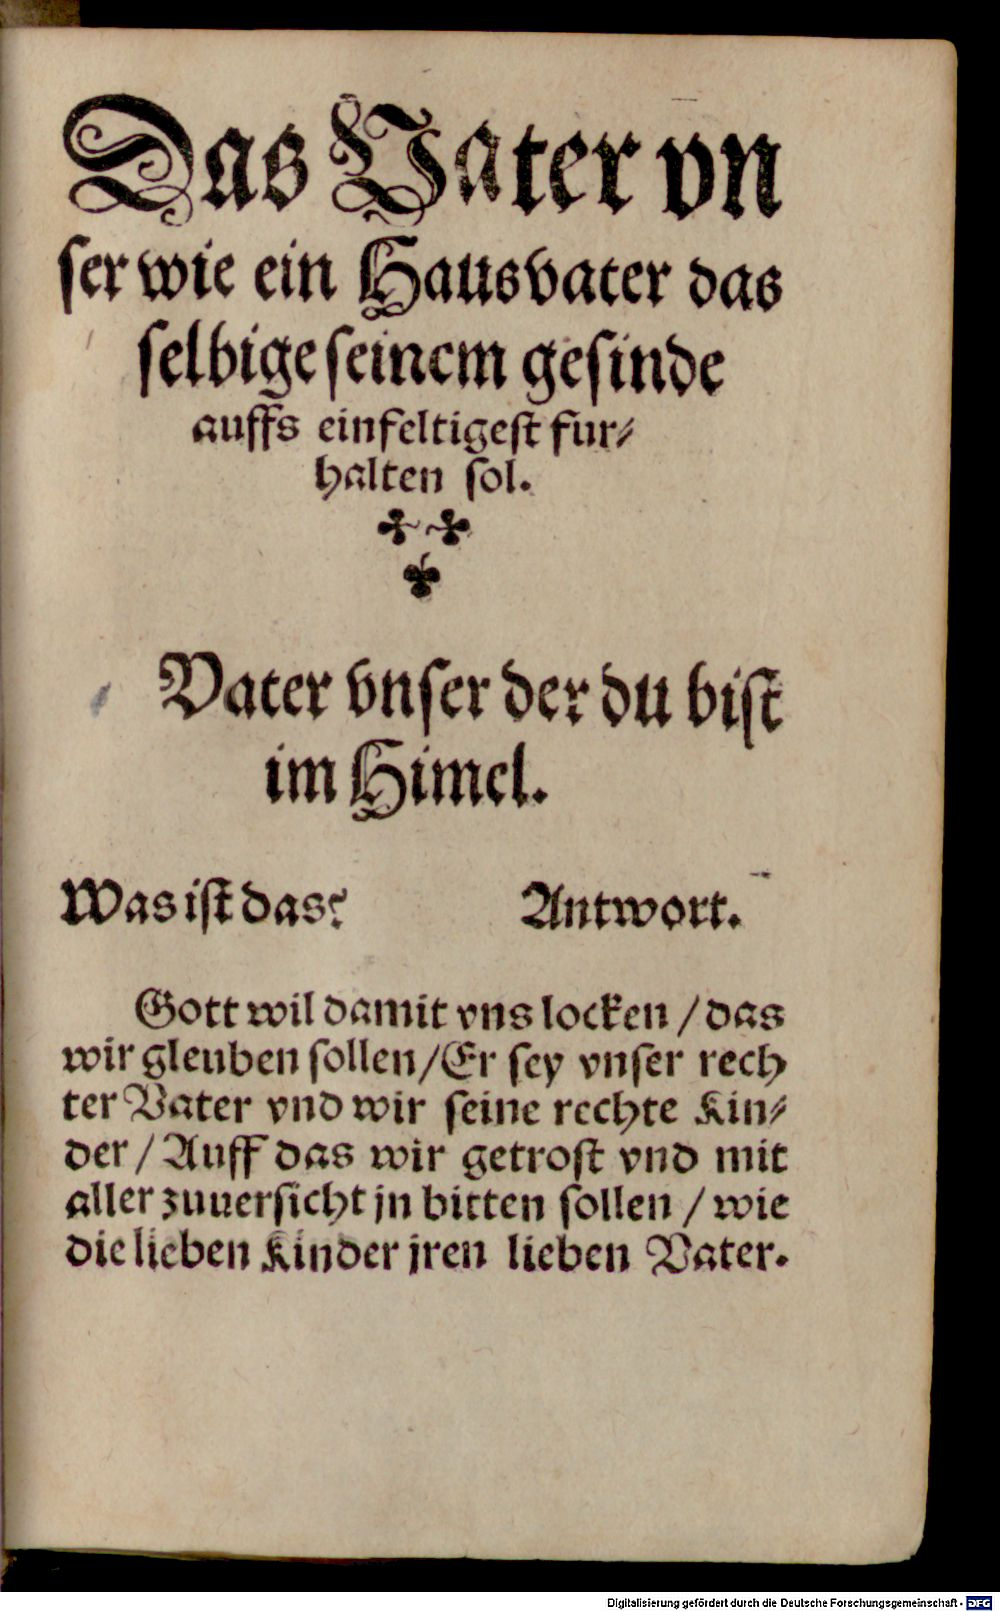 Das Vater vn
ser wie ein Hausvater das
selbige seinem gesinde
auffs einfeltigest fur⸗
halten sol.
Vater vnser der du bist
im Himel.
Was ist das? Antwort.
Gott wil damit vns locken / das
wir gleuben sollen / Er sey vnser rech
ter Vater vnd wir seine rechte Kin⸗
der / Auff das wir getrost vnd mit
aller zuuersicht jn bitten sollen / wie
die lieben Kinder jren lieben Vater.
Digitalisierung gefördert durch die Deutsche Forschungsgemeinschaft - DFG